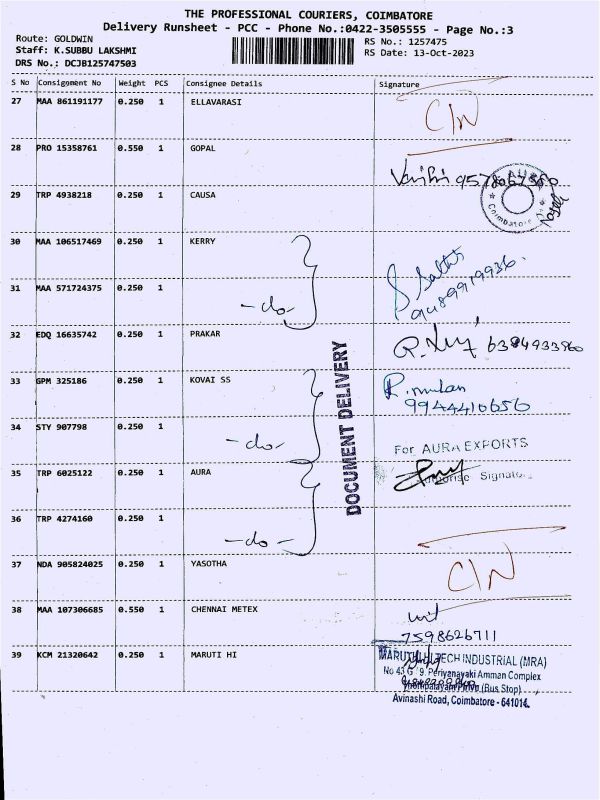 THE PROFESSIONAL COURIERS, COIMBATORE
Delivery Runsheet - PCC - Phone No.:0422-3505555 - Page No.:3
Route: GOLDWIN
Staff: K.SUBBU LAKSHMI
DRS No.: DCJB125747503
RS No.: 1257475
RS Date: 13-Oct-2023
S No Consignment No Weight PCS Consignee Details Signature
27 MAA 861191177 0.250 1 ELLAVARASI C/N
28 PRO 15358761 0.550 1 GOPAL
29 TRP 4938218 0.250 1 CAUSA
Coimbatore
30 MAA 106517469 0.250 1 KERRY
31 MAA 571724375 0.250 1 -do-
9489919936
32 EDQ 16635742 0.250 1 PRAKAR
33 GPM 325186 0.250 1 KOVAI SS
9944410656
34 STY 907798 0.250 1 -do-
DOCUMENT DELIVERY
For AURA EXPORTS
35 TRP 6025122 0.250 1 AURA
36 TRP 4274160 0.250 1 -do-
37 NDA 905824025 0.250 1 YASOTHA C/N
38 MAA 107306685 0.550 1 CHENNAI METEX
7598626711
39 KCM 21320642 0.250 1 MARUTI HI
MARUTHI HITECH INDUSTRIAL (MRA)
Periyanayaki Amman Complex
(Bus Stop)
Avinashi Road, Coimbatore - 641014.